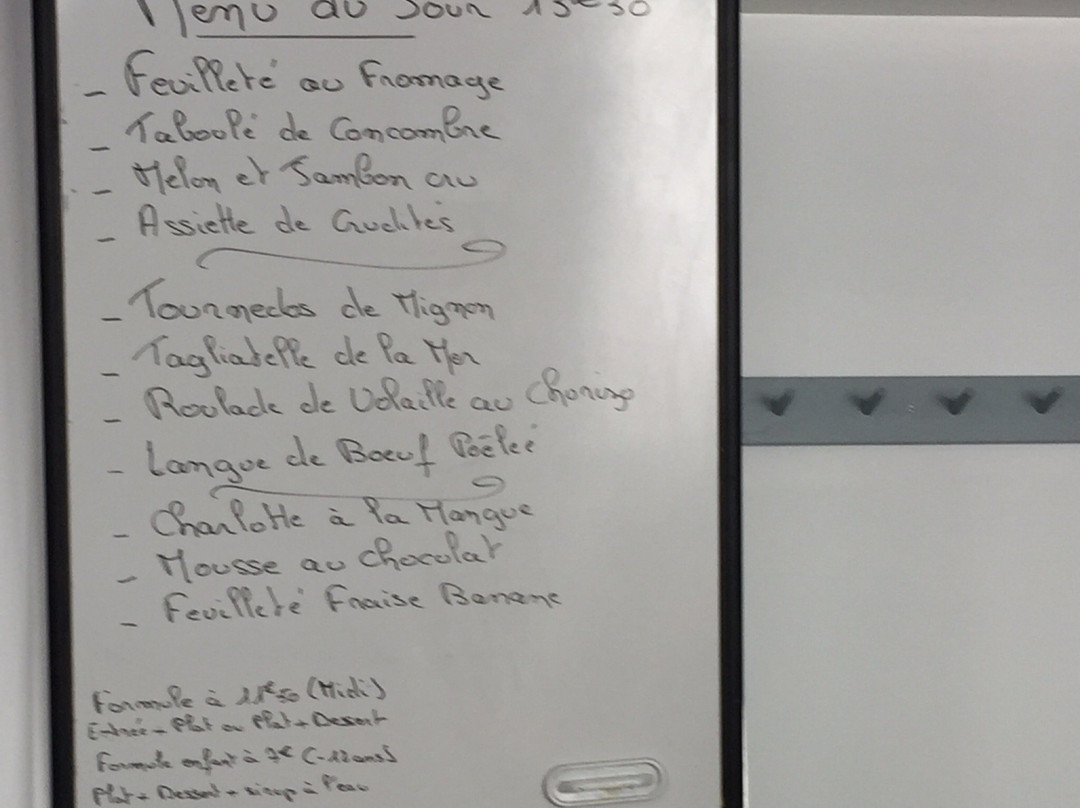 Menu du Jour 13€50
- Feuilleté au Fromage
- Taboulé de Concombre
- Melon et Jambon cru
- Assiette de Crudités
- Tournedos de Mignon
- Tagliatelle de la Mer
- Roulade de Volaille au Chorizo
- Langue de Boeuf Poêleé
- Charlotte à la Mangue
- Mousse au chocolat
- Feuilleté Fraise Banane
Formule à 11€50 (Midi)
Entrée + Plat ou Plat + Dessert
Formule enfant à 7€ (-12ans)
Plat + Dessert + sirop à l'eau